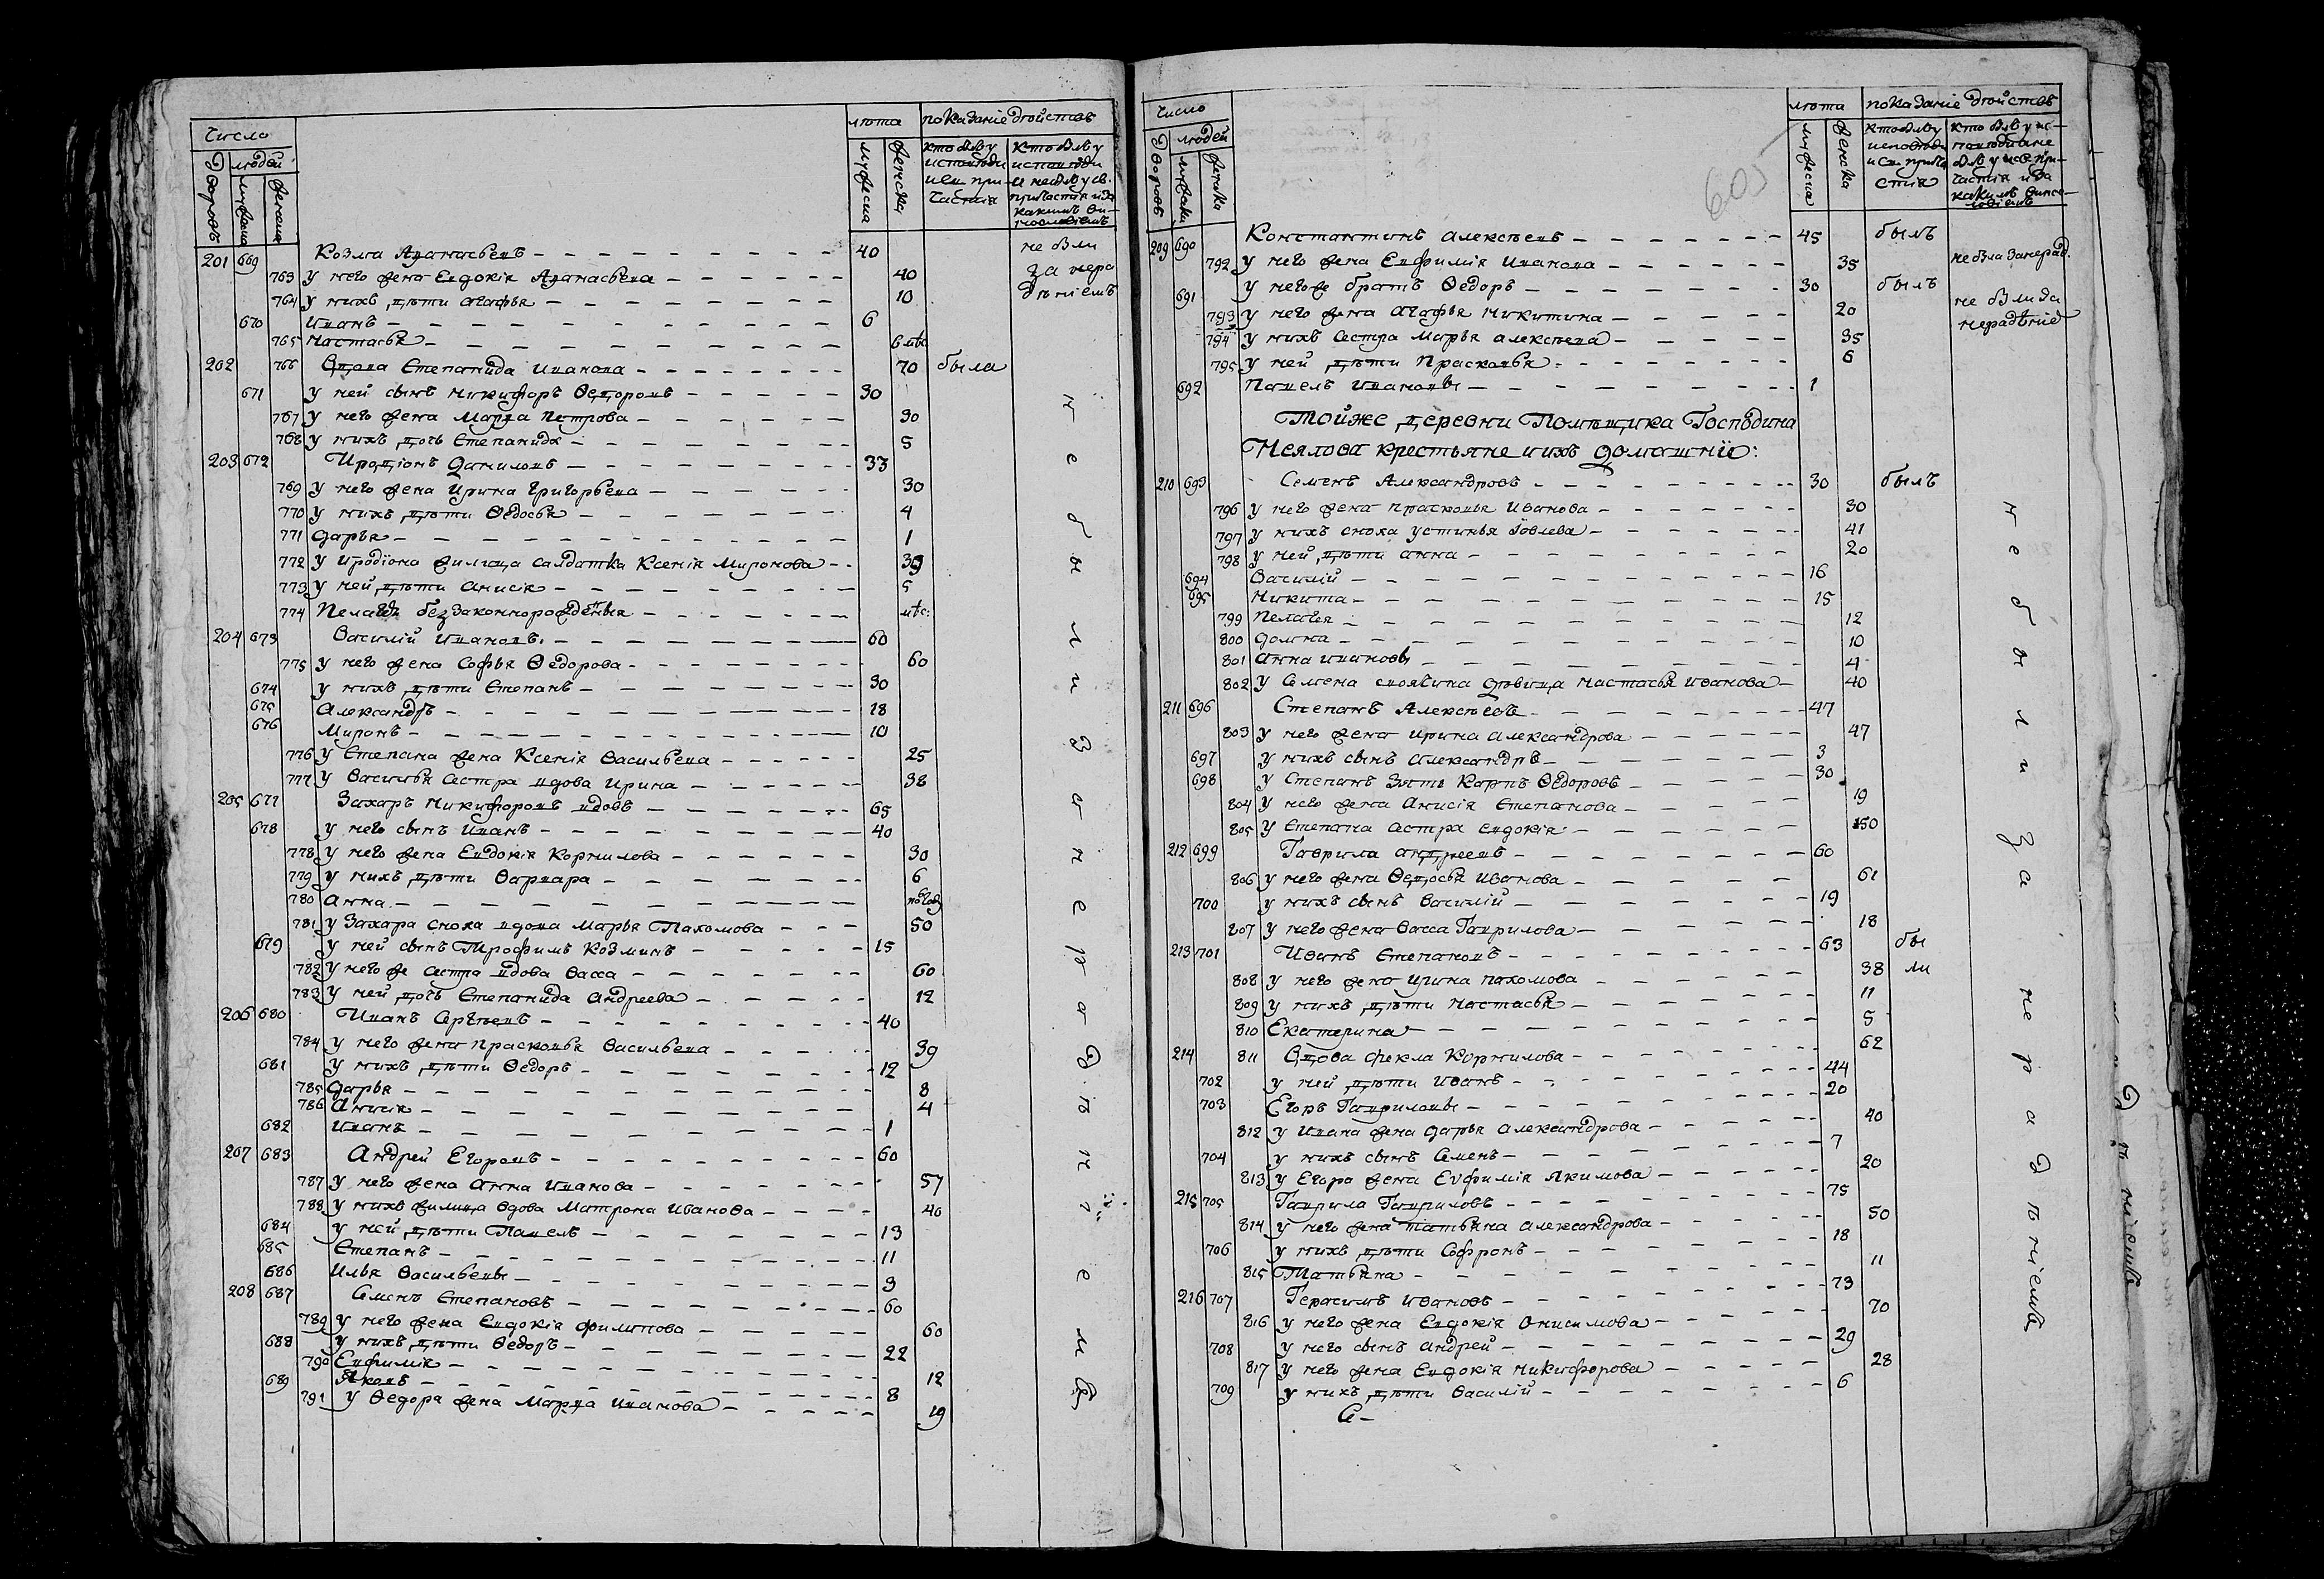 число
людей
дворовъ
мужеска
женска
лѣта
мужеска
женска
показаніе дѣйствъ
201 669 Козма Аѳанасьевъ 40 не были
763 у него жена Евдокія Аѳанасьева 40 за нера
764 у нихъ дѣти Агафья 10 дѣніемъ
670 Иванъ 6
765 Настасья 6
202 766 Вдова Степанида Иванова 70 была
671 у ней сынъ Никифоръ Ѳедоровъ 30
767 у него жена Марѳа Петрова 30
768 у нихъ дочь Степанида 5
203 672 Иродіонъ Даниловъ 33
769 у него жена Ирина Григорьева 30
770 у нихъ дѣти Ѳедосья 4
771 Дарья 1
772 у Иродіона жилица салдатка Ксенія Миронова 39
773 у ней дѣти Анисія 5
774 Пелагея беззаконнорожденыя
204 673 Василій Ивановъ 60
775 у него жена Софья Ѳедорова 60
674 у нихъ дѣти Степанъ 30
675 Александръ 18
676 Миронъ 10
776 у Степана жена Ксенія Васильева 25
777 у Василья сестра вдова Ирина 38
205 677 Захаръ Никифоровъ вдовъ 65
678 у него сынъ Иванъ 40
778 у него жена Евдокія Корнилова 30
779 у нихъ дѣти Варвара 6
780 Анна
781 у Захара сноха вдова Марья Пахомова 50
679 у ней сынъ Трофимъ Козминъ 15
782 у него же сестра вдова Васса 60
783 у ней дочь Степанида Андреева 12
206 680 Иванъ Сергѣевъ 40
784 у него жена Прасковья Васильева 39
681 у нихъ дѣти Ѳедоръ 12
785 Дарья 8
786 Анисія 4
682 Иванъ 1
207 683 Андрей Егоровъ 60
787 у него жена Анна Иванова 57
788 у нихъ жилица вдова Матрона Иванова 40
684 у ней дѣти Павелъ 13
685 Степанъ 11
686 Илья Васильевы 9
208 687 Семенъ Степановъ 60
789 у него жена Евдокія Филипова 60
688 у нихъ дѣти Ѳедоръ 22
790 Евфимія 12
689 Яковъ 8
791 у Ѳедора жена Марѳа Иванова 19
не были за нерадѣніемъ
число
людей
дворовъ
мужеска
женска
лѣта
мужеска
женска
показаніе дѣйствъ
605
209 690 Константинъ Алексѣевъ 45 былъ
792 у него жена Евфимія Иванова 35 не была за нерад.
691 у негоже братъ Ѳедоръ 30 былъ
793 у него жена Агафья Никитина 20 не были за
794 у нихъ сестра Марья Алексѣева 35 нерадѣніе
795 у ней дѣти Прасковья 6
692 Павелъ Ивановы 1
Тойже деревни Помѣщика Господина
Неялова крестьяне и ихъ домашнїи:
210 693 Семенъ Александровъ 30 былъ
796 у него жена Прасковья Иванова 30
797 у нихъ сноха Устинья Іовлева 41
798 у ней дѣти Анна 20
694 Василій 16
695 Никита 15
799 Пелагея 12
800 Домна 10
801 Анна Ивановы 4
802 у Семена своячина дѣвица Настасья Иванова 40
211 696 Степанъ Алексѣевъ 47
803 у него жена Ирина Александрова 47
697 у нихъ сынъ Александръ 3
698 у Степанъ зять Карпъ Ѳедоровъ 30
804 у него жена Анисія Степанова 19
805 у Степана сестра Евдокія 50
212 699 Гаврила Андреевъ 60
806 у него жена Ѳедосья Иванова 61
700 у нихъ сынъ Василій 19
807 у него жена Васса Гаврилова 18
213 701 Иванъ Степановъ 63 бы
808 у него жена Ирина Пахомова 38 ли
809 у нихъ дѣти Настасья 11
810 Екатерина 5
214 811 Вдова Фекла Корнилова 62
702 у ней дѣти Иванъ 44
703 Егоръ Гавриловы 20
812 у Ивана жена Дарья Александрова 40
704 у нихъ сынъ Семенъ 7
813 у Егора жена Евфимія Якимова 20
215 705 Гаврила Гавриловъ 75
814 у него жена Татьяна Александрова 50
706 у нихъ дѣти Софронъ 18
815 Татьяна 11
216 707 Герасимъ Ивановъ 73
816 у него жена Евдокія Онисимова 70
708 у него сынъ Андрей 29
817 у него жена Евдокія Никифорова 28
709 у нихъ дѣти Василій 6
С-
не были за нерадѣніемъ